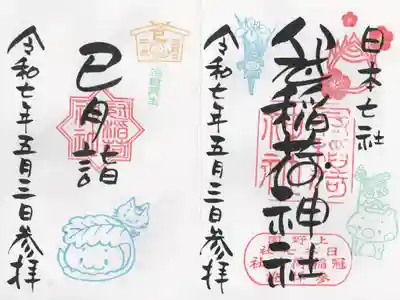 日本七社
冠稲荷神社
令和七年五月三日参拝
巳月詣
令和七年五月三日参拝